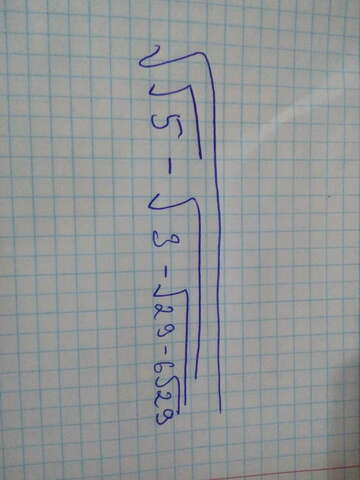 √(√5 - √(3 - √(29 - 6√29)))